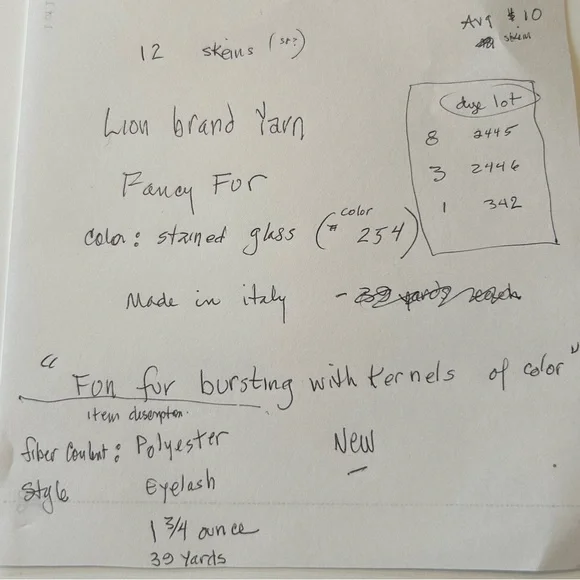 Avg $10
skein
12 skeins (sp?)
dye lot
8 2445
3 2446
1 342
Lion brand Yarn
Fancy Fur
color: stained glass (color # 254)
Made in italy - 39 yards
"Fun fur bursting with kernels of color"
item description.
fiber Content: Polyester
New
Style Eyelash
1 3/4 ounce
39 Yards